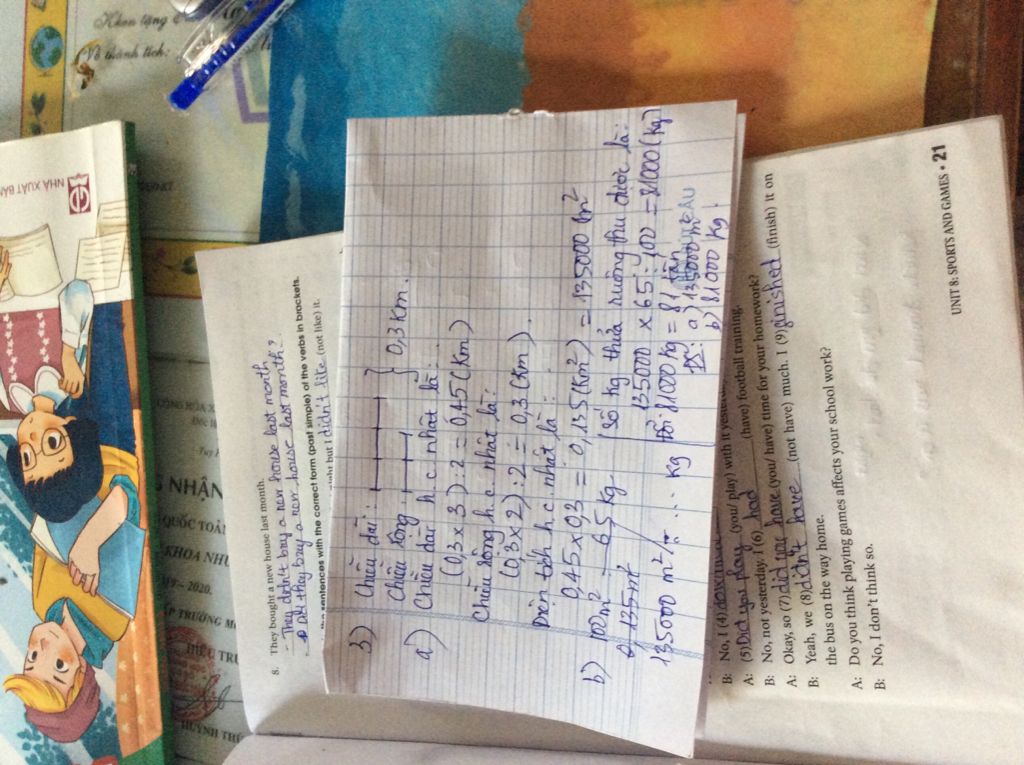 Khen tặng
Về thành tích:
NHÀ XUẤT BẢN
NHẬN
QUỐC TOẢN
KHOA NHƯ
2020.
TRƯỞNG
HIỆU TRƯ
HUỲNH THỨ
8. They bought a new house last month.
- They didn't buy a new house last month
- Did they buy a new house last month?
sentences with the correct form (past simple) of the verbs in brackets.
but I didn't like (not like) it.
3) Chiều dài:
Chiều rộng
0,3 km.
a) Chiều dài h.c.nhật là:
(0,3 x 3) : 2 = 0,45 (km)
Chiều rộng h.c.nhật là:
(0,3 x 2) : 2 = 0,3 (km)
Diện tích h.c.nhật là:
0,45 x 03 = 0,135 (km²) = 135000 (m²
b) 100m² : 65 kg.
135000 m² : .... kg
Số kg thửa ruộng thu được là:
135000 x 65 : 100 = 81000 (kg)
Đổi: 81000 kg = 81 tấn
ĐS: a) 135000 m²
b) 81000 kg.
B: No, I (4)
A: (5) Did you play (you/play) with it yesterday
B: No, not yesterday. I (6) had (have) football training.
A: Okay, so (7) did you have (you/have) time for your homework?
B: Yeah, we (8) didn't have (not have) much. I (9) finished (finish) it on
the bus on the way home.
A: Do you think playing games affects your school work?
B: No, I don't think so.
UNIT 8: SPORTS AND GAMES • 21